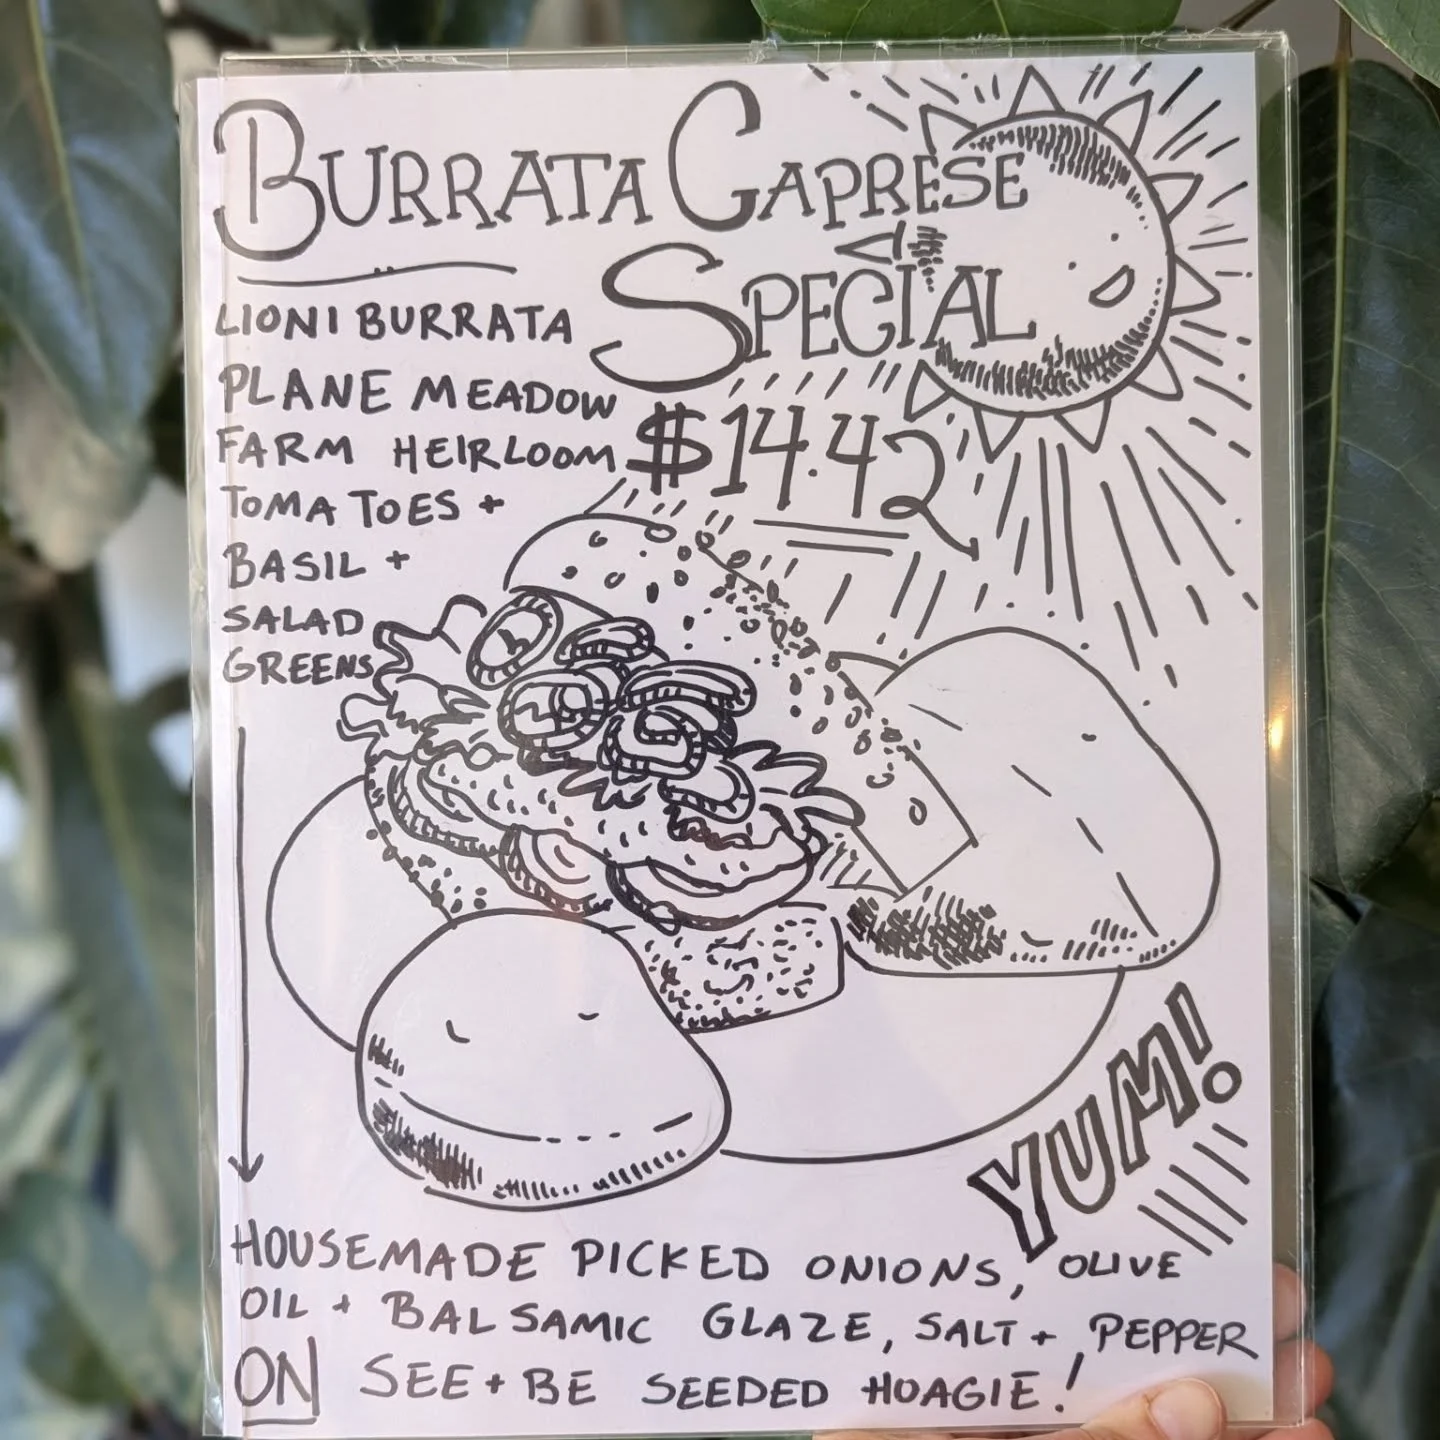 BURRATA CAPRESE
SPECIAL
$14.42
LIONI BURRATA
PLANE MEADOW
FARM HEIRLOOM
TOMATOES +
BASIL +
SALAD
GREENS
YUM!
HOUSEMADE PICKED ONIONS, OLIVE
OIL + BALSAMIC GLAZE, SALT + PEPPER
ON SEE + BE SEEDED HOAGIE!